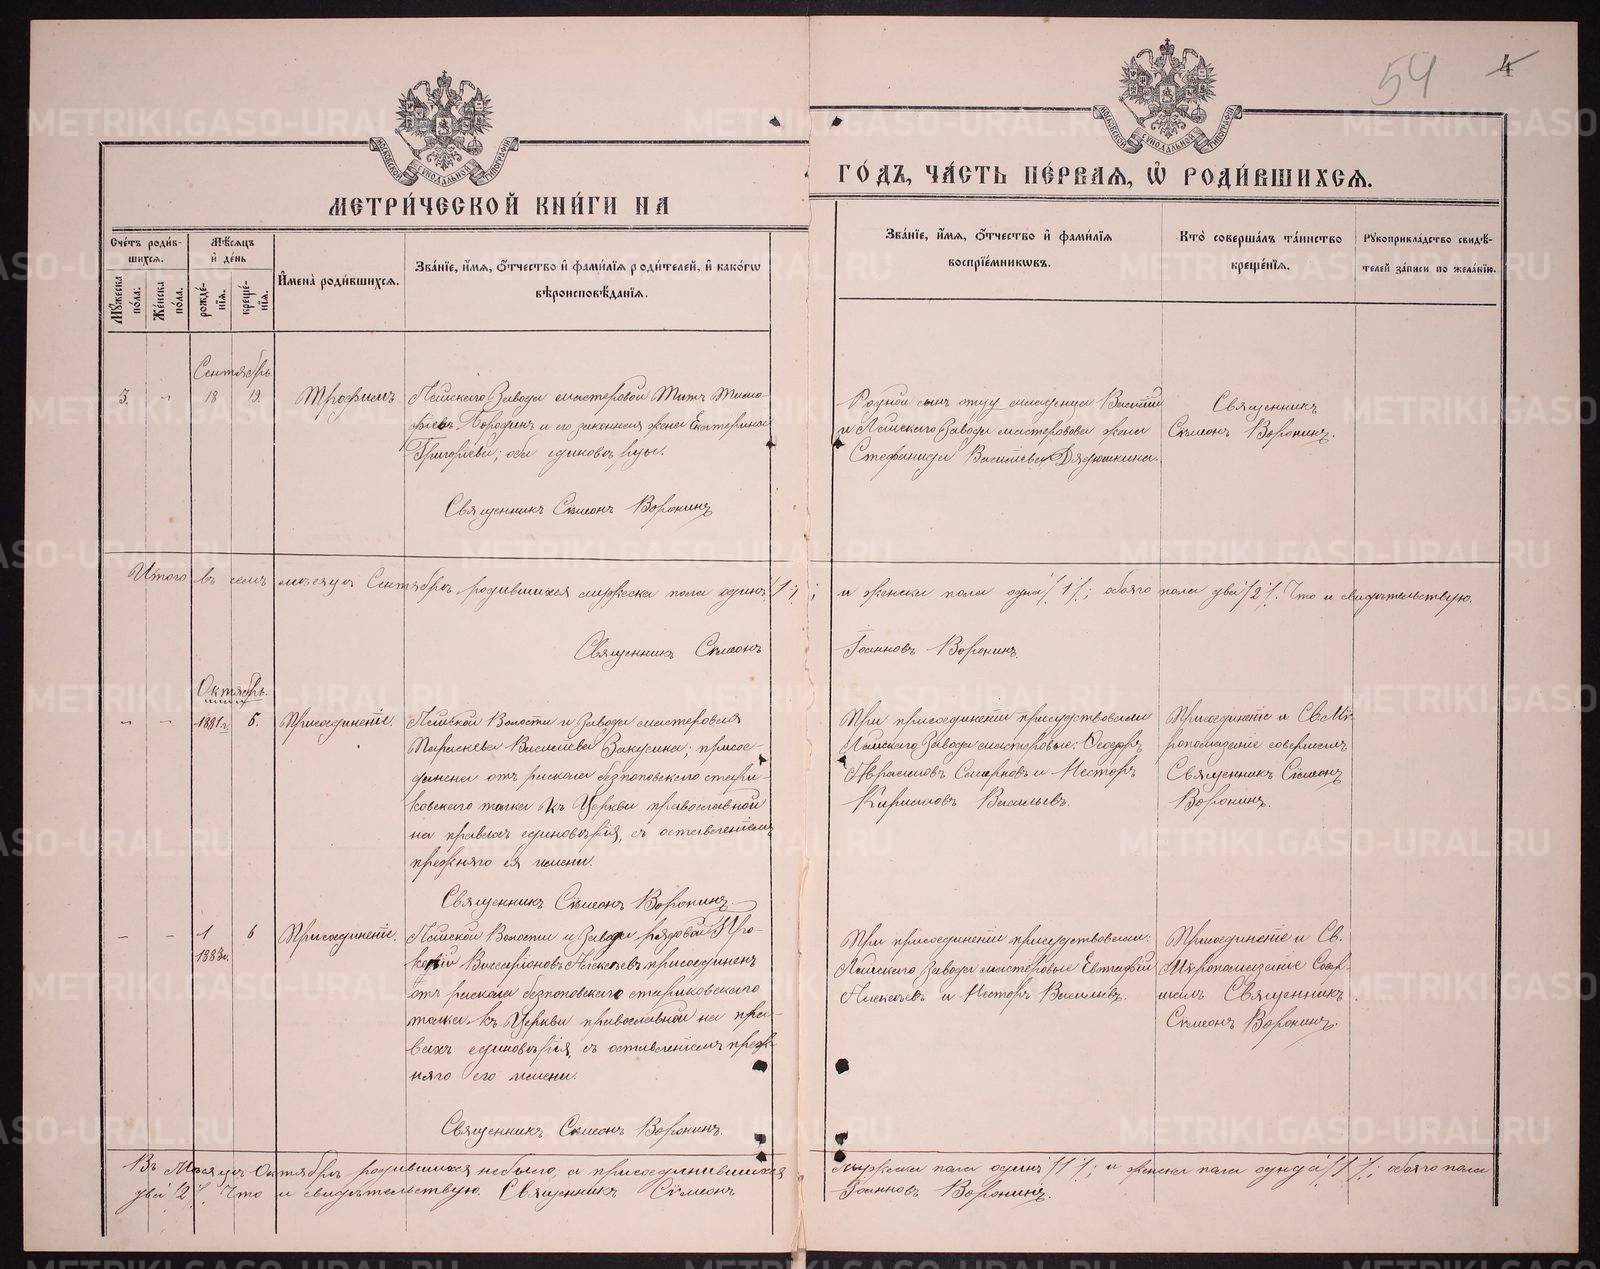 54
4
МОСКОВСКОЙ СѴНОДАЛЬНОЙ ТИПОГРАФІИ
МОСКОВСКОЙ СѴНОДАЛЬНОЙ ТИПОГРАФІИ
МЕТРИ́ЧЕСКОЙ КНИ́ГИ НА
ГО́ДЪ, ЧА́СТЬ ПЕ́РВАѦ, Ѽ РОДИ́ВШИХСѦ.
Сче́тъ роди́в-
шихсѧ.
Мꙋ́жеска по́ла.
Же́нска по́ла.
Мѣ́сѧцъ
и҆ де́нь
рожде́-
нїѧ.
креще́-
нїѧ.
И҆мена̀ роди́вшихсѧ.
Зва́нїе, и҆́мѧ, ѻ҆́тчество и҆ фами́лїѧ роди́телей, и҆ како́гѡ
вѣроисповѣ́данїѧ.
Зва́нїе, и҆́мѧ, ѻ҆́тчество и҆ фами́лїѧ
воспрїе́мникѡвъ.
Кто̀ соверша́лъ та́инство
креще́нїѧ.
Рꙋкоприкла́дство свидѣ́-
телей за́писи по жела́нїю.
Сентябрь.
3. - 18 19. Трофимъ
Лайскаго Завода мастеровой Титъ Тимо-
феевъ Бородинъ и его законная жена Екатерина
Григорьева; оба единоверцы.
Священникъ Сѵмеонъ Воронинъ
Родной сынъ отцу младенца Василій
и Лайскаго Завода мастерового жена
Стефанида Васильева Дядюшкина.
Священникъ
Сѵмеонъ Воронинъ.
Итого въ семъ месяцѣ Сентябрѣ родившихся мужеска пола одинъ /1/; и женска пола одна /1/; обоего пола два /2/. Что и свидѣтельствую.
Священникъ Сѵмеонъ Іоанновъ Воронинъ.
Октябрь.
- - 1881г. 6. Присоединеніе.
Лайской Волости и Завода мастеровая
Параскева Васильева Закусина; присое-
динена отъ раскола безпоповскаго стари-
ковскаго толка къ Церкви православной
на правахъ единовѣрія, съ оставленіемъ
прежняго ея имени.
Священникъ Сѵмеонъ Воронинъ.
При присоединеніи присутствовали
Лайскаго Завода мастеровые: Ѳеодоръ
Смирновъ и Несторъ
Кирилловъ Васильевъ.
Присоединеніе и Св. Мѵ-
ропомазаніе совершилъ
Священникъ Сѵмеонъ
Воронинъ.
- - 1 6 Присоединеніе.
1883г.
Лайской Волости и Завода рядовой Про-
копій Виссаріоновъ Алексеевъ присоединенъ
отъ раскола безпоповскаго стариковскаго
толка къ Церкви православной на пра-
вахъ единовѣрія, съ оставленіемъ преж-
няго его имени.
Священникъ Сѵмеонъ Воронинъ.
При присоединеніи присутствовали:
Лайскаго Завода мастеровые Евстафій
Алексеевъ и Несторъ Васильевъ.
Присоединеніе и Св.
Мѵропомазаніе Совер-
шилъ Священникъ
Сѵмеонъ Воронинъ.
Въ Месяцѣ Октябрѣ родившихся небыло; а присоединившихся мужеска пола одинъ /1/; и женска пола одна /1/; обоего пола
два /2/. Что и свидѣтельствую. Священникъ Сѵмеонъ Іоанновъ Воронинъ.
METRIKI.GASO-URAL.RU